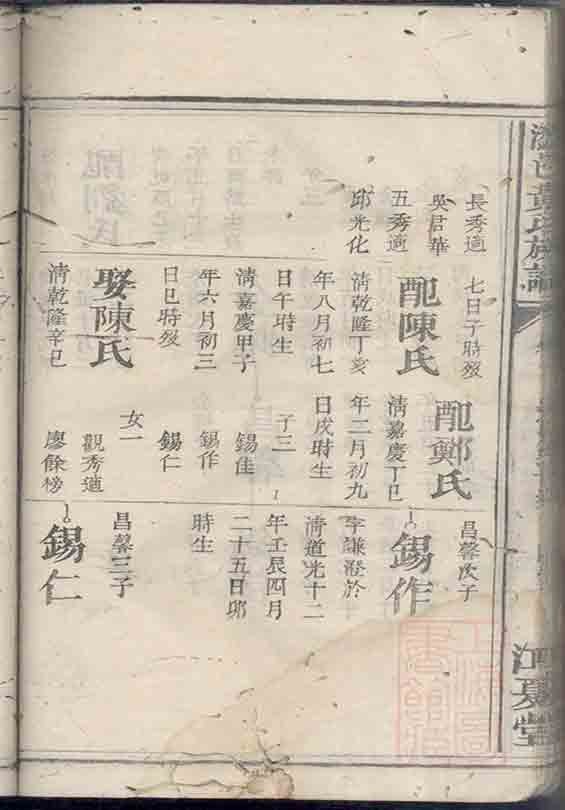 邑黃氏族譜
江夏堂
長秀適
吳君華
五秀適
邱光化
七日子時歿
配陳氏
清乾隆丁亥
年八月初七
日午時生
清嘉慶甲子
年六月初三
日巳時歿
娶陳氏
清乾隆辛巳
配鄭氏
清嘉慶丁巳
年二月初九
日戌時生
子三
錫佳
錫作
錫仁
女一
觀秀適
廖餘榜
昌馨次子
錫作
字謙 於
清道光十二
年壬辰四月
二十五日卯
時生
昌馨三子
錫仁
上海圖
書館藏